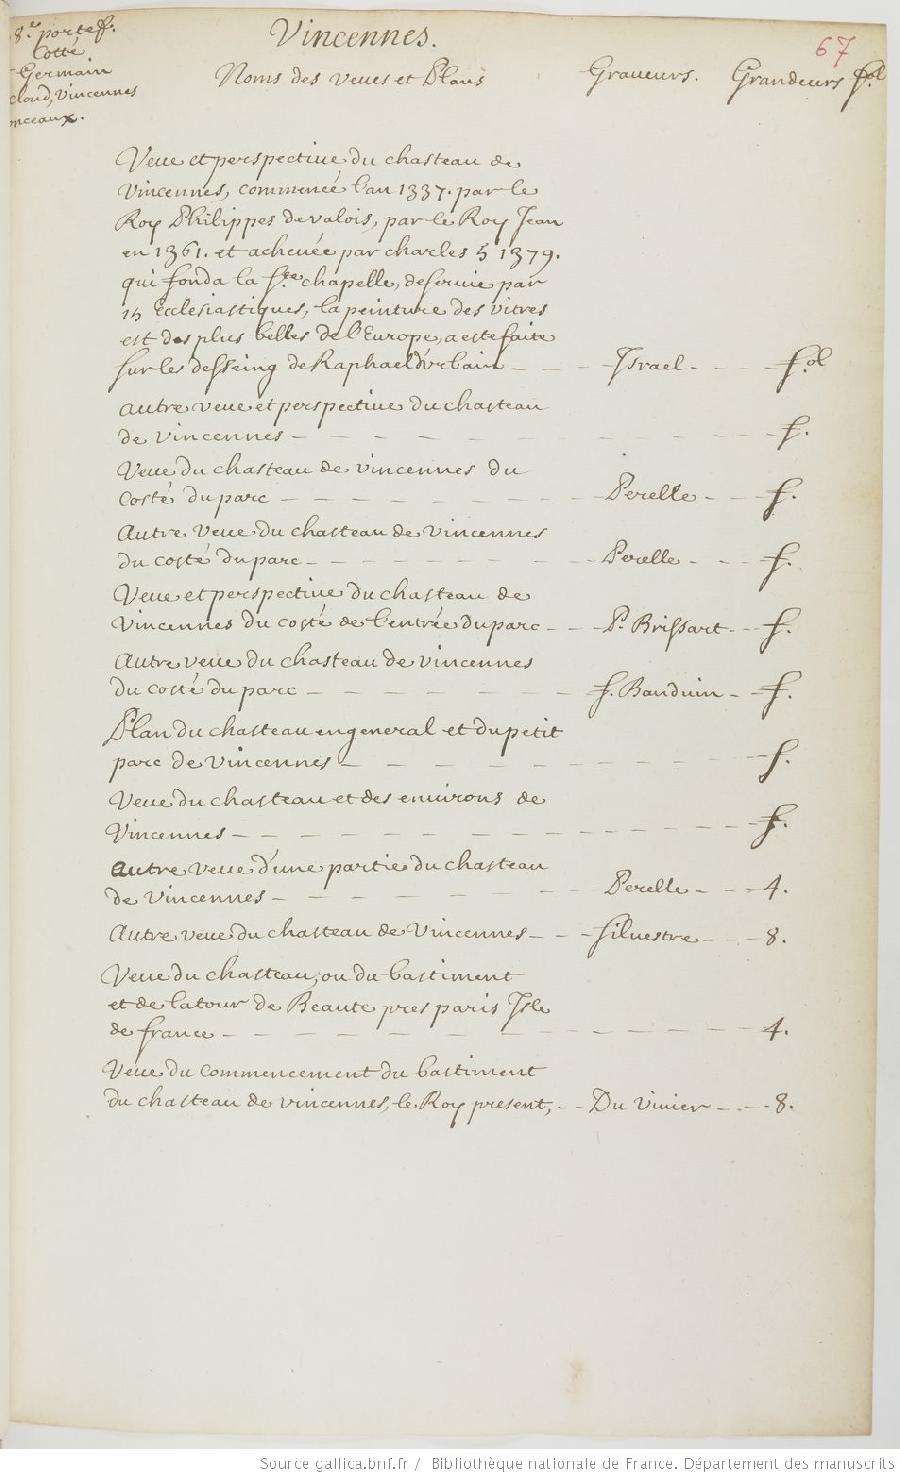 8.e portef.
Cotté
Germain
cloud, Vincennes
onceaux.
Vincennes.
67
Noms des veues et Plans Graveurs. Grandeurs fol.
Veue et perspective du chasteau de
Vincennes, commencé l'an 1337. par le
Roy Philippes de valois, par le Roy Jean
en 1361. et achevée par charles 5 1379.
qui fonda la Ste chapelle, deservie par
15 Ecclesiastiques, la peinture des vitres
est des plus belles de l'Europe, a esté faite
sur les desseing de Raphael d'urbain - - - Israel - - - fol.
autre veue et perspective du chasteau
de vincennes - - - f.
Veue du chasteau de vincennes du
costé du parc - - - Perelle - - - f.
Autre Veue du chasteau de Vincennes
du costé du parc - - - Perelle - - - f.
Veue et perspective du chasteau de
Vincennes du costé de l'entrée du parc - - - P. Brissart - - - f.
Autre veue du chasteau de Vincennes
du costé du parc - - - f. Bauduin - - - f.
Plan du chasteau en general et du petit
parc de Vincennes - - - f.
Veue du chasteau et des environs de
Vincennes - - - f.
autre veue d'une partie du chasteau
de Vincennes - - - Perelle - - - 4.
Autre veue du chasteau de Vincennes - - - Silvestre - - - 8.
Veue du chasteau, ou du bastiment
et de la tour de Beaute pres paris Isle
de france - - - 4.
Veue du commencement du bastiment
du chasteau de vincennes, le Roy present, - - - Du Vivier - - - 8.
Source gallica.bnf.fr / Bibliothèque nationale de France. Département des manuscrits